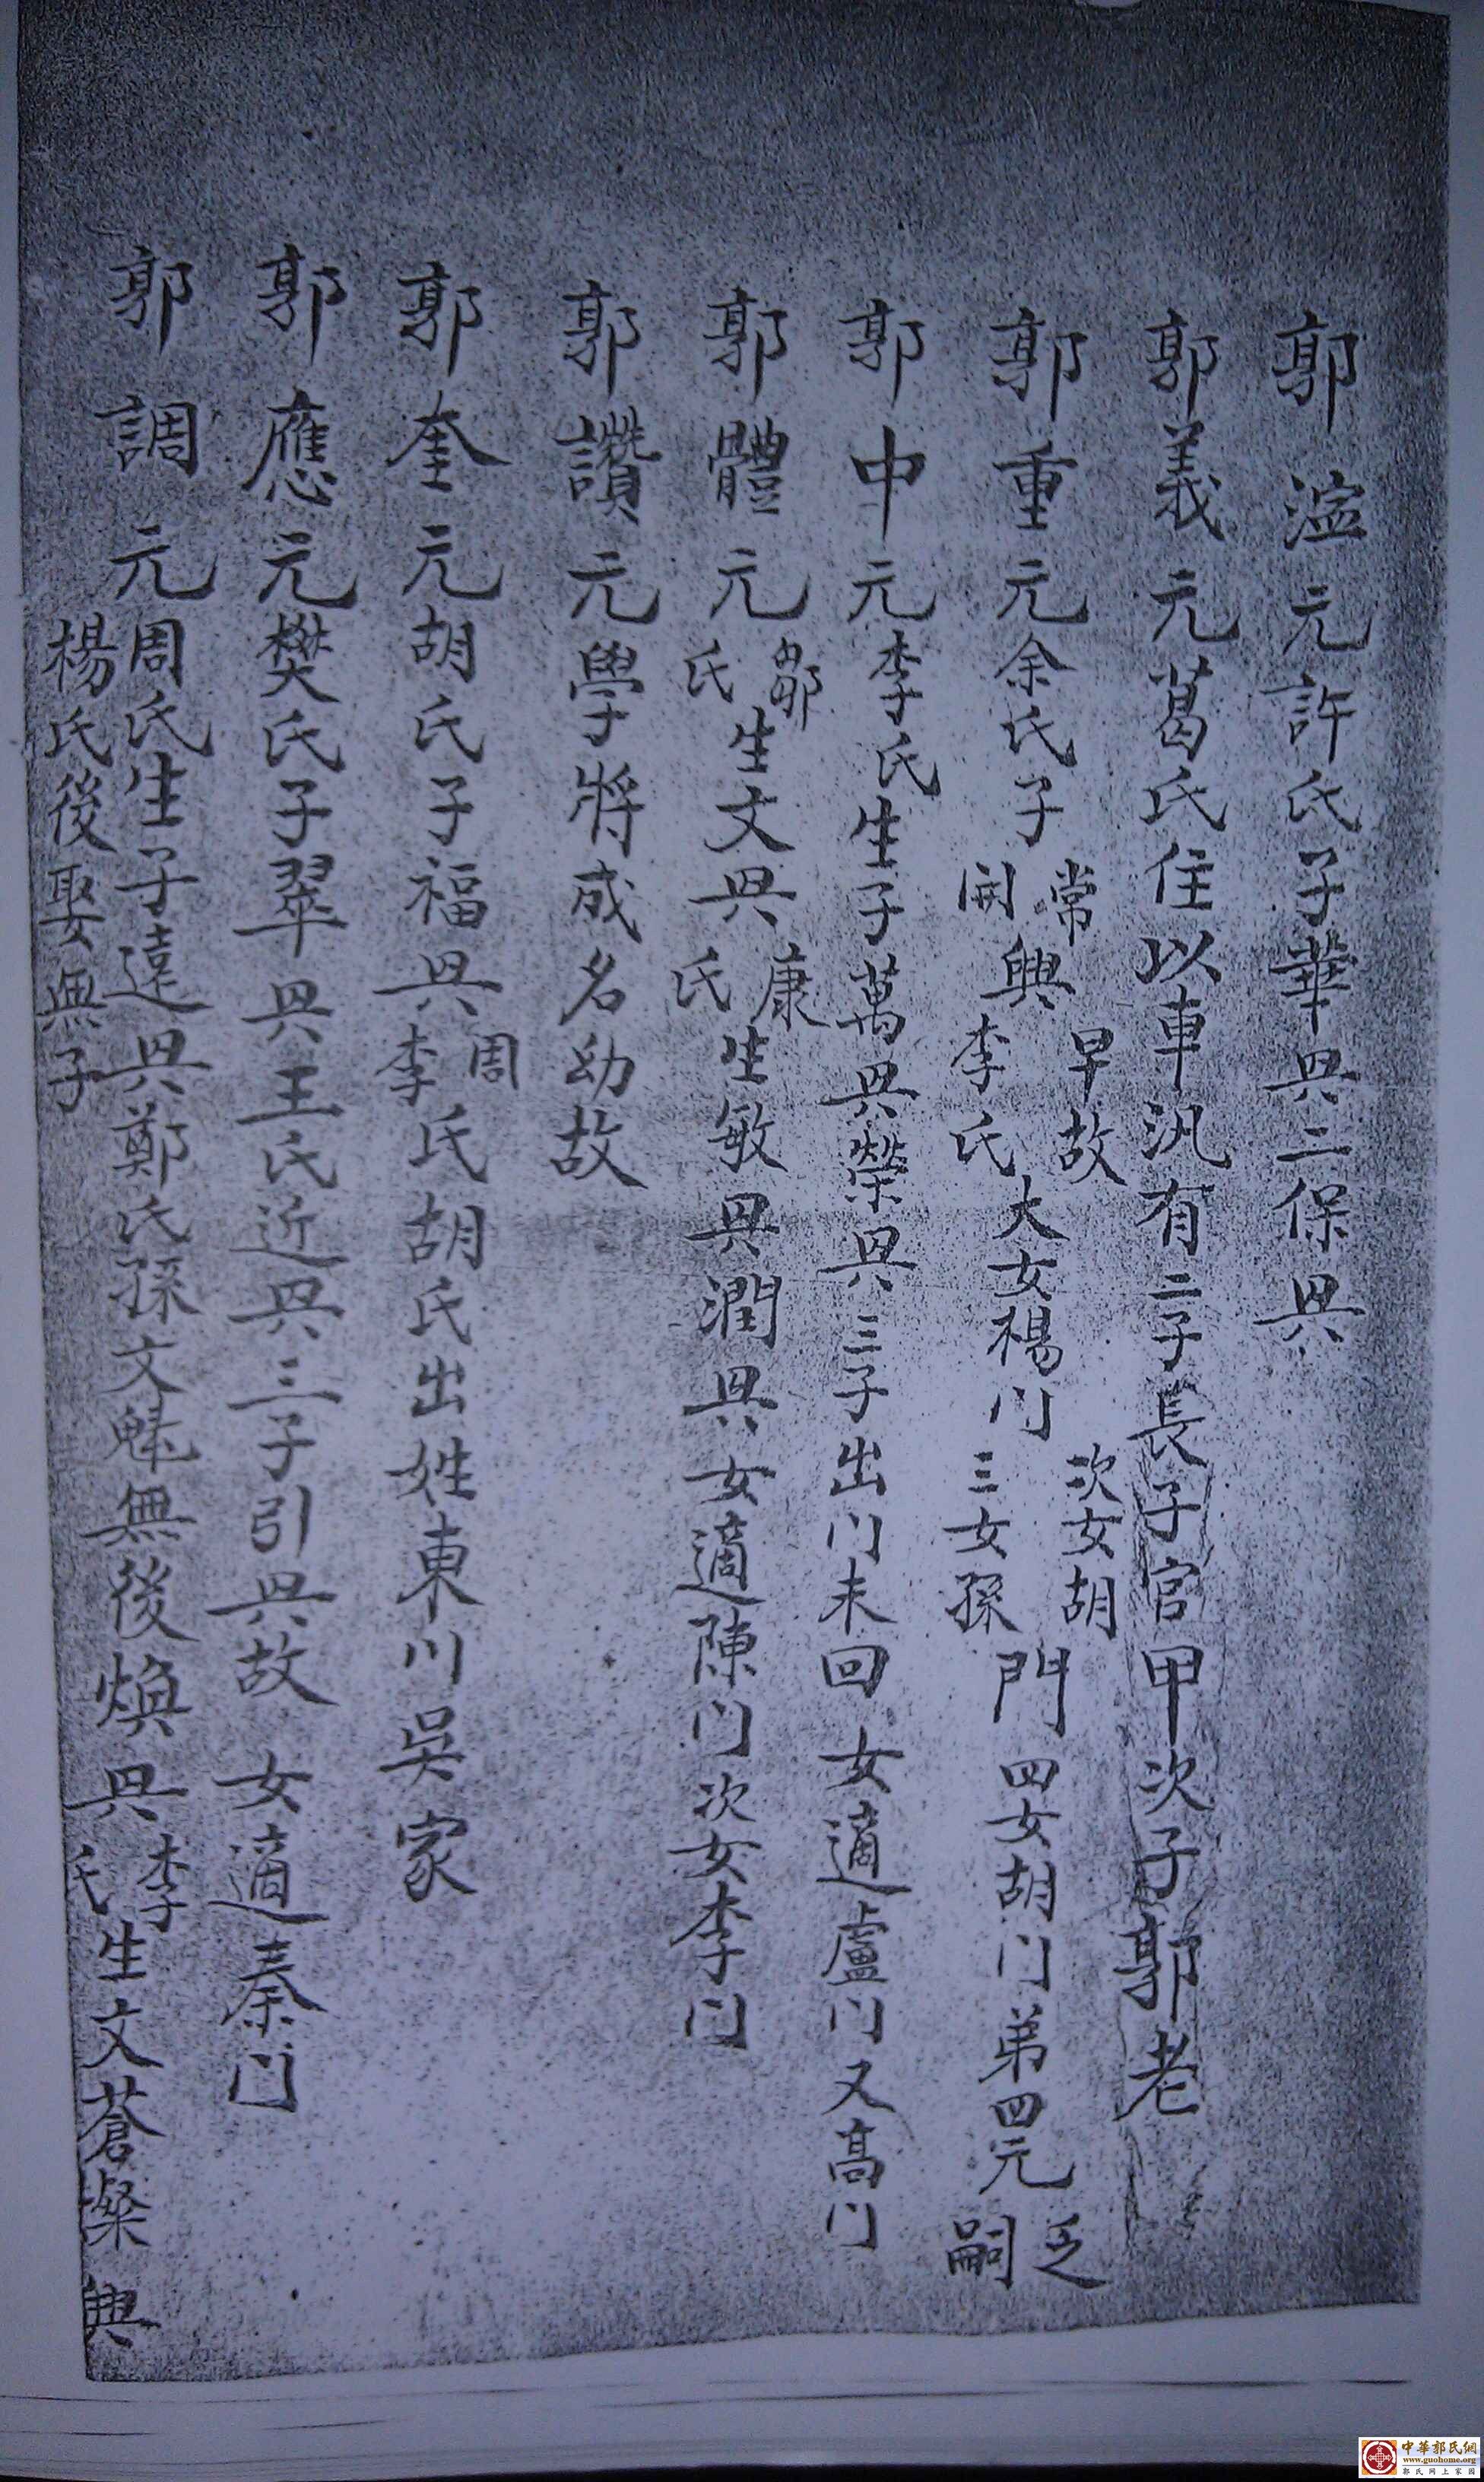 郭溢元許氏子華兴二保兴
郭義元葛氏住以車汎有二子長子官甲次子郭老
郭重元余氏子常開興早故李氏大女楊门次女胡三女孫門四女胡门弟四元乏嗣
郭中元李氏生子萬兴榮兴三子出川未回女適盧门又高门
郭體元鄒氏生文兴康氏生敏兴潤兴女適陳门次女李门
郭讚元學將成名幼故
郭奎元胡氏子福兴周李氏胡氏出姓東川吳家
郭應元樊氏子翠兴王氏近兴三子引兴故 女適秦门
郭調元周氏生子遠兴鄭氏孫文魁無後煥兴李氏生文蒼燦興
楊氏後娶無子
中華郭氏網
www.guohome.org
郭氏网上家園